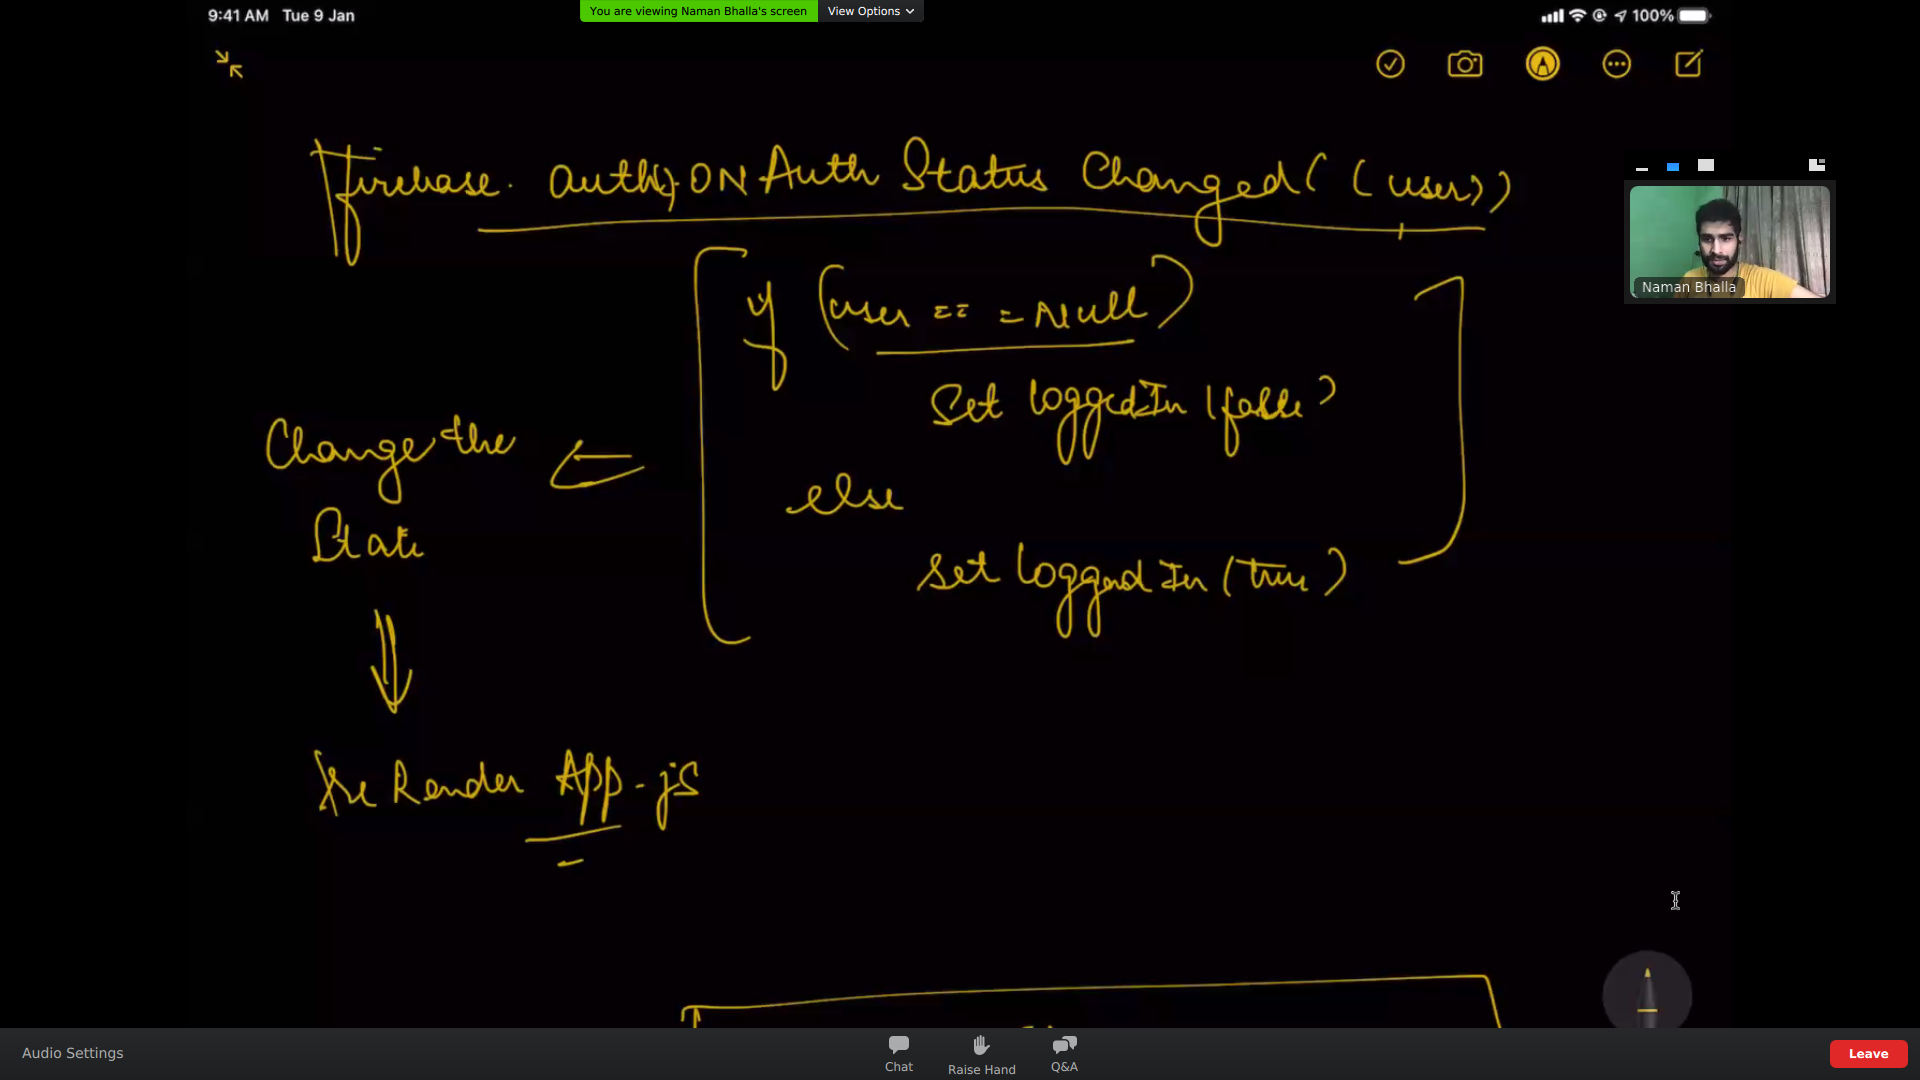 9:41 AM Tue 9 Jan
You are viewing Naman Bhalla's screen View Options
100%
firebase. auth().ON Auth Status Changed( (user))
Naman Bhalla
if (user == = Null)
Set loggedIn (false)
Change the
else
State
Set loggedIn (true)
Re Render App.js
Audio Settings
Chat
Raise Hand
Q&A
Leave